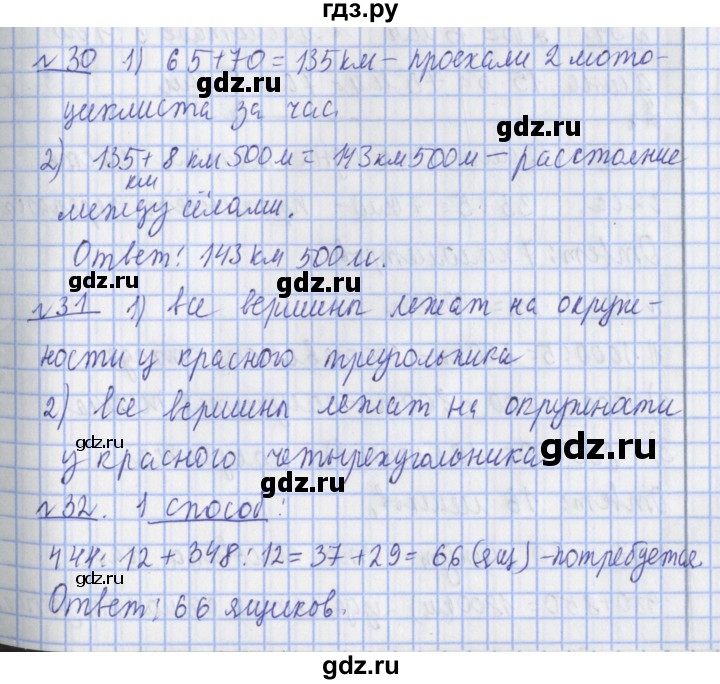 гдз.ру
№30 1) 65+70=135 км – проехали 2 мото-
циклиста за час.
gdz.ru
gdz.ru
2) 135+8 км 500 м = 143 км 500 м – расстояние
км
gdz.ru
между сёлами.
Ответ: 143 км 500 м.
gdz.ru
gdz.ru
№31 1) все вершины лежат на окруж-
gdz.ru
ности у красного треугольника
gdz.ru
2) все вершины лежат на окружности
gdz.ru
у красного четырехугольника
gdz.ru
gdz.ru
№32. 1 способ:
gdz.ru
444:12+348:12=37+29=66 (ящ) – потребуется
gdz.ru
gdz.ru
Ответ: 66 ящиков.
gdz.ru
gdz.ru
gdz.ru